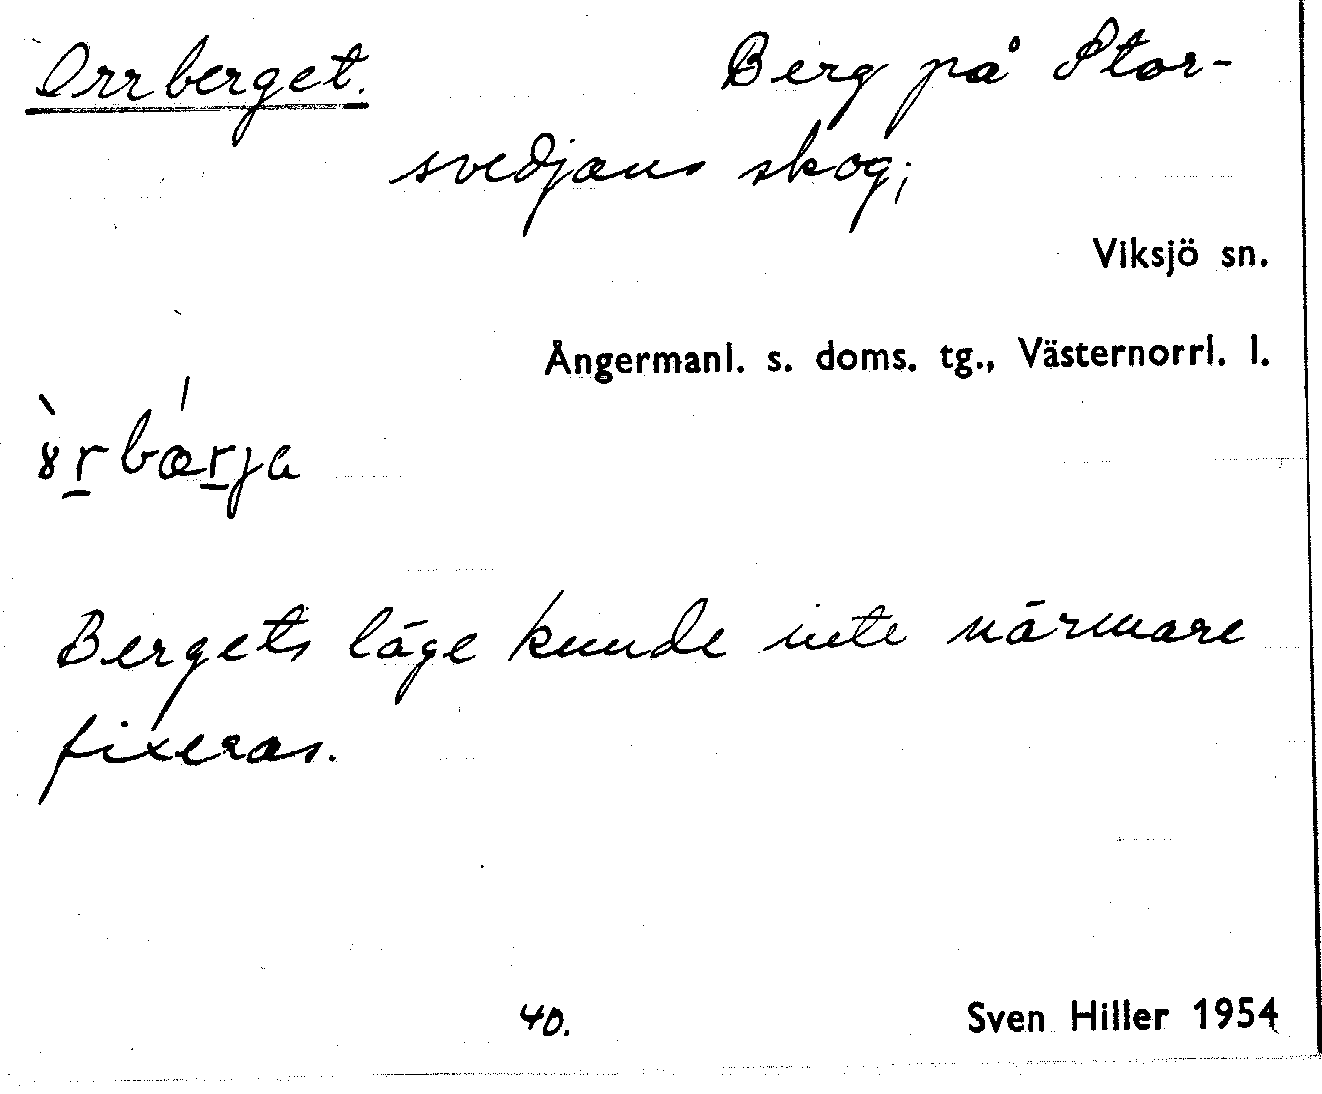 Orrberget. Berg på Stor-
svedjans skog;
Viksjö sn.
Ångermanl. s. doms. tg., Västernorrl. l.
Bergets läge kunde inte närmare
fixeras.
40. Sven Hiller 1954